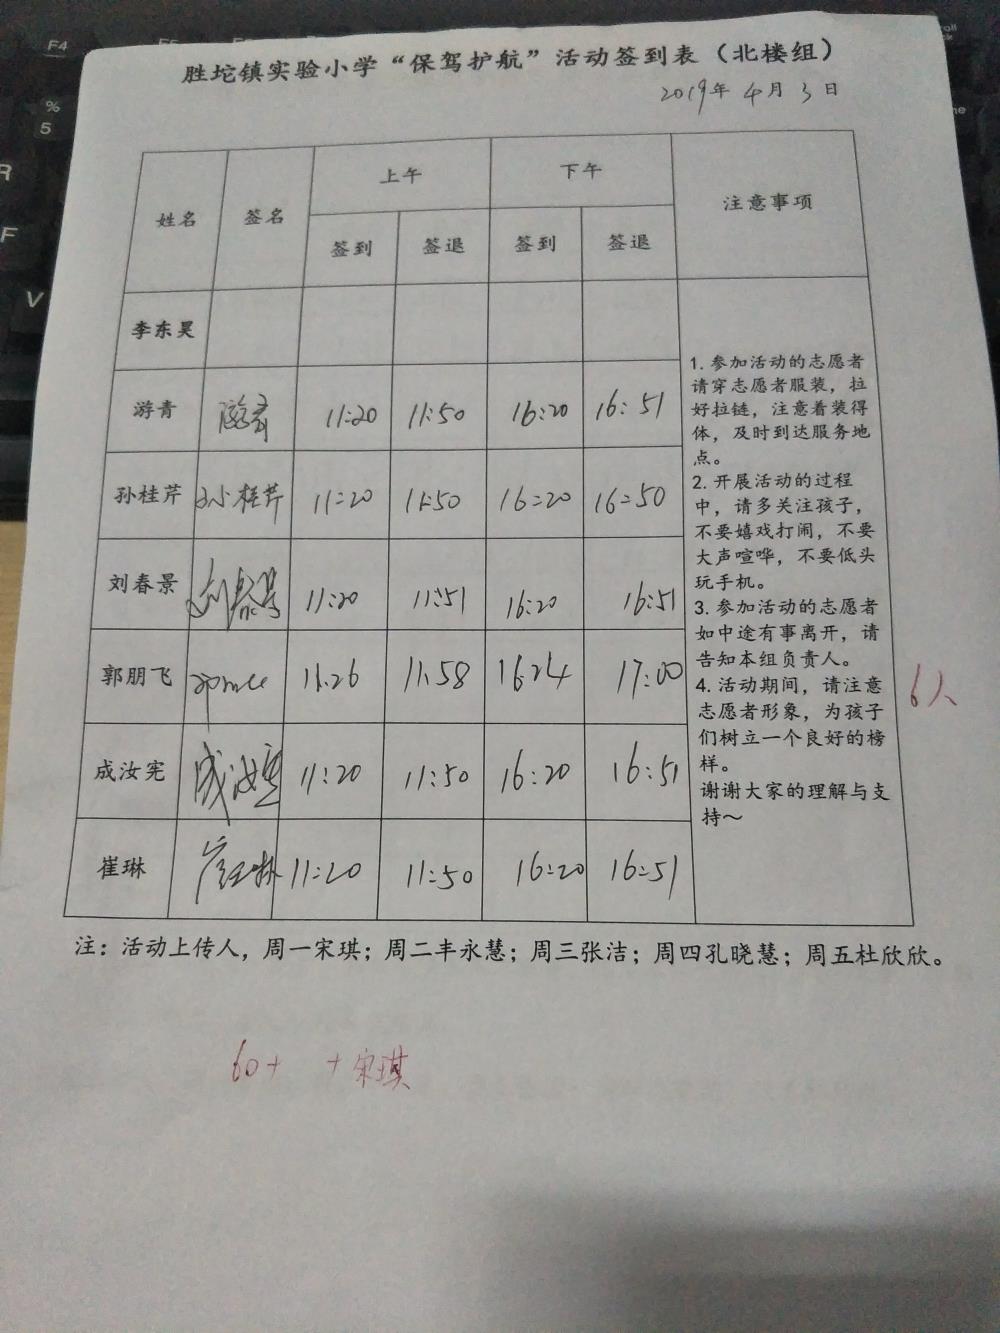 胜坨镇实验小学“保驾护航”活动签到表（北楼组）
2019年 4月 3日
姓名 签名 上午 下午 注意事项
签到 签退 签到 签退
李东昊
游青 游青 11:20 11:50 16:20 16:51
孙桂芹 孙桂芹 11:20 11:50 16:20 16:50
刘春景 刘春景 11:20 11:51 16:20 16:51
郭朋飞 11:26 11:58 16:24 17:00
成汝宪 成汝宪 11:20 11:50 16:20 16:51
崔琳 崔琳 11:20 11:50 16:20 16:51
1. 参加活动的志愿者
请穿志愿者服装，拉
好拉链，注意着装得
体，及时到达服务地
点。
2. 开展活动的过程
中，请多关注孩子，
不要嬉戏打闹，不要
大声喧哗，不要低头
玩手机。
3. 参加活动的志愿者
如中途有事离开，请
告知本组负责人。
4. 活动期间，请注意
志愿者形象，为孩子
们树立一个良好的榜
样。
谢谢大家的理解与支
持～
6人
注：活动上传人，周一宋琪；周二丰永慧；周三张洁；周四孔晓慧；周五杜欣欣。
60+ +宋琪
F4
%
5
R
F
V